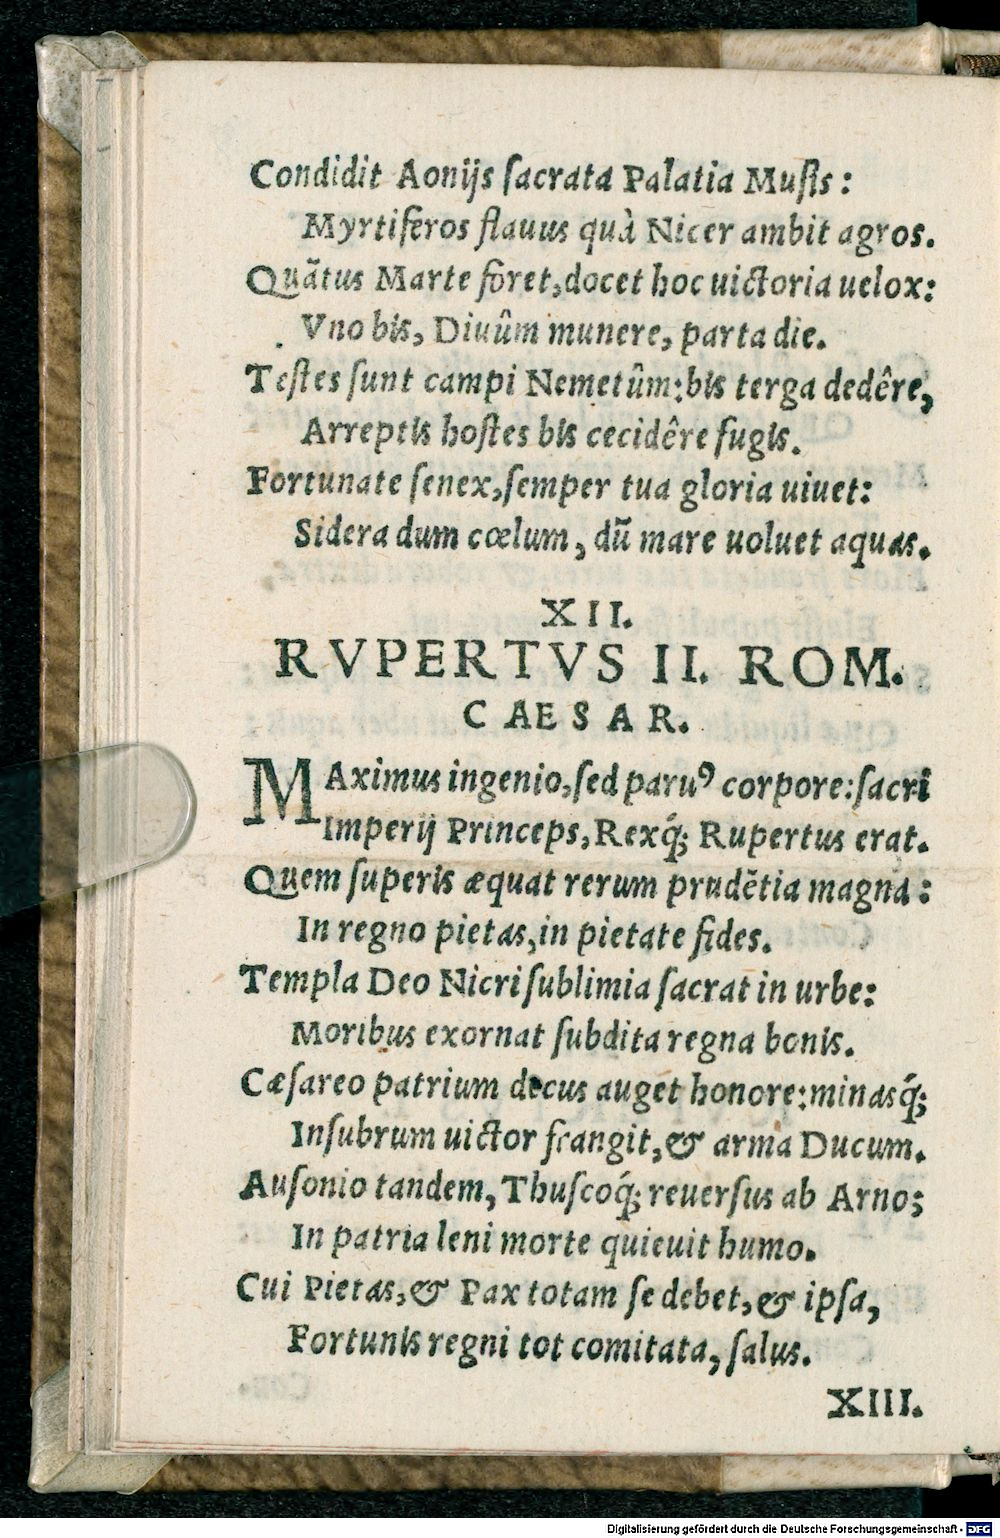 Condidit Aonijs ſacrata Palatia Muſis:
Myrtiferos flauus quà Nicer ambit agros.
Quãtus Marte foret, docet hoc uictoria uelox:
Vno bis, Diuûm munere, parta die.
Teſtes ſunt campi Nemetûm: bis terga dedêre,
Arreptis hoſtes bis cecidêre fugis.
Fortunate ſenex, ſemper tua gloria uiuet:
Sidera dum cœlum, dũ mare uoluet aquas.
XII.
RVPERTVS II. ROM.
CAESAR.
MAximus ingenio, ſed paruꝰ corpore: ſacri
Imperij Princeps, Rexq́; Rupertus erat.
Quem ſuperis æquat rerum prudẽtia magna:
In regno pietas, in pietate fides.
Templa Deo Nicri ſublimia ſacrat in urbe:
Moribus exornat ſubdita regna bonis.
Cæſareo patrium decus auget honore: minasq́;
Inſubrum uictor frangit, & arma Ducum.
Auſonio tandem, Thuſcoq́; reuerſus ab Arno;
In patria leni morte quieuit humo.
Cui Pietas, & Pax totam ſe debet, & ipſa,
Fortunis regni tot comitata, ſalus.
XIII.
Digitalisierung gefördert durch die Deutsche Forschungsgemeinschaft - DFG